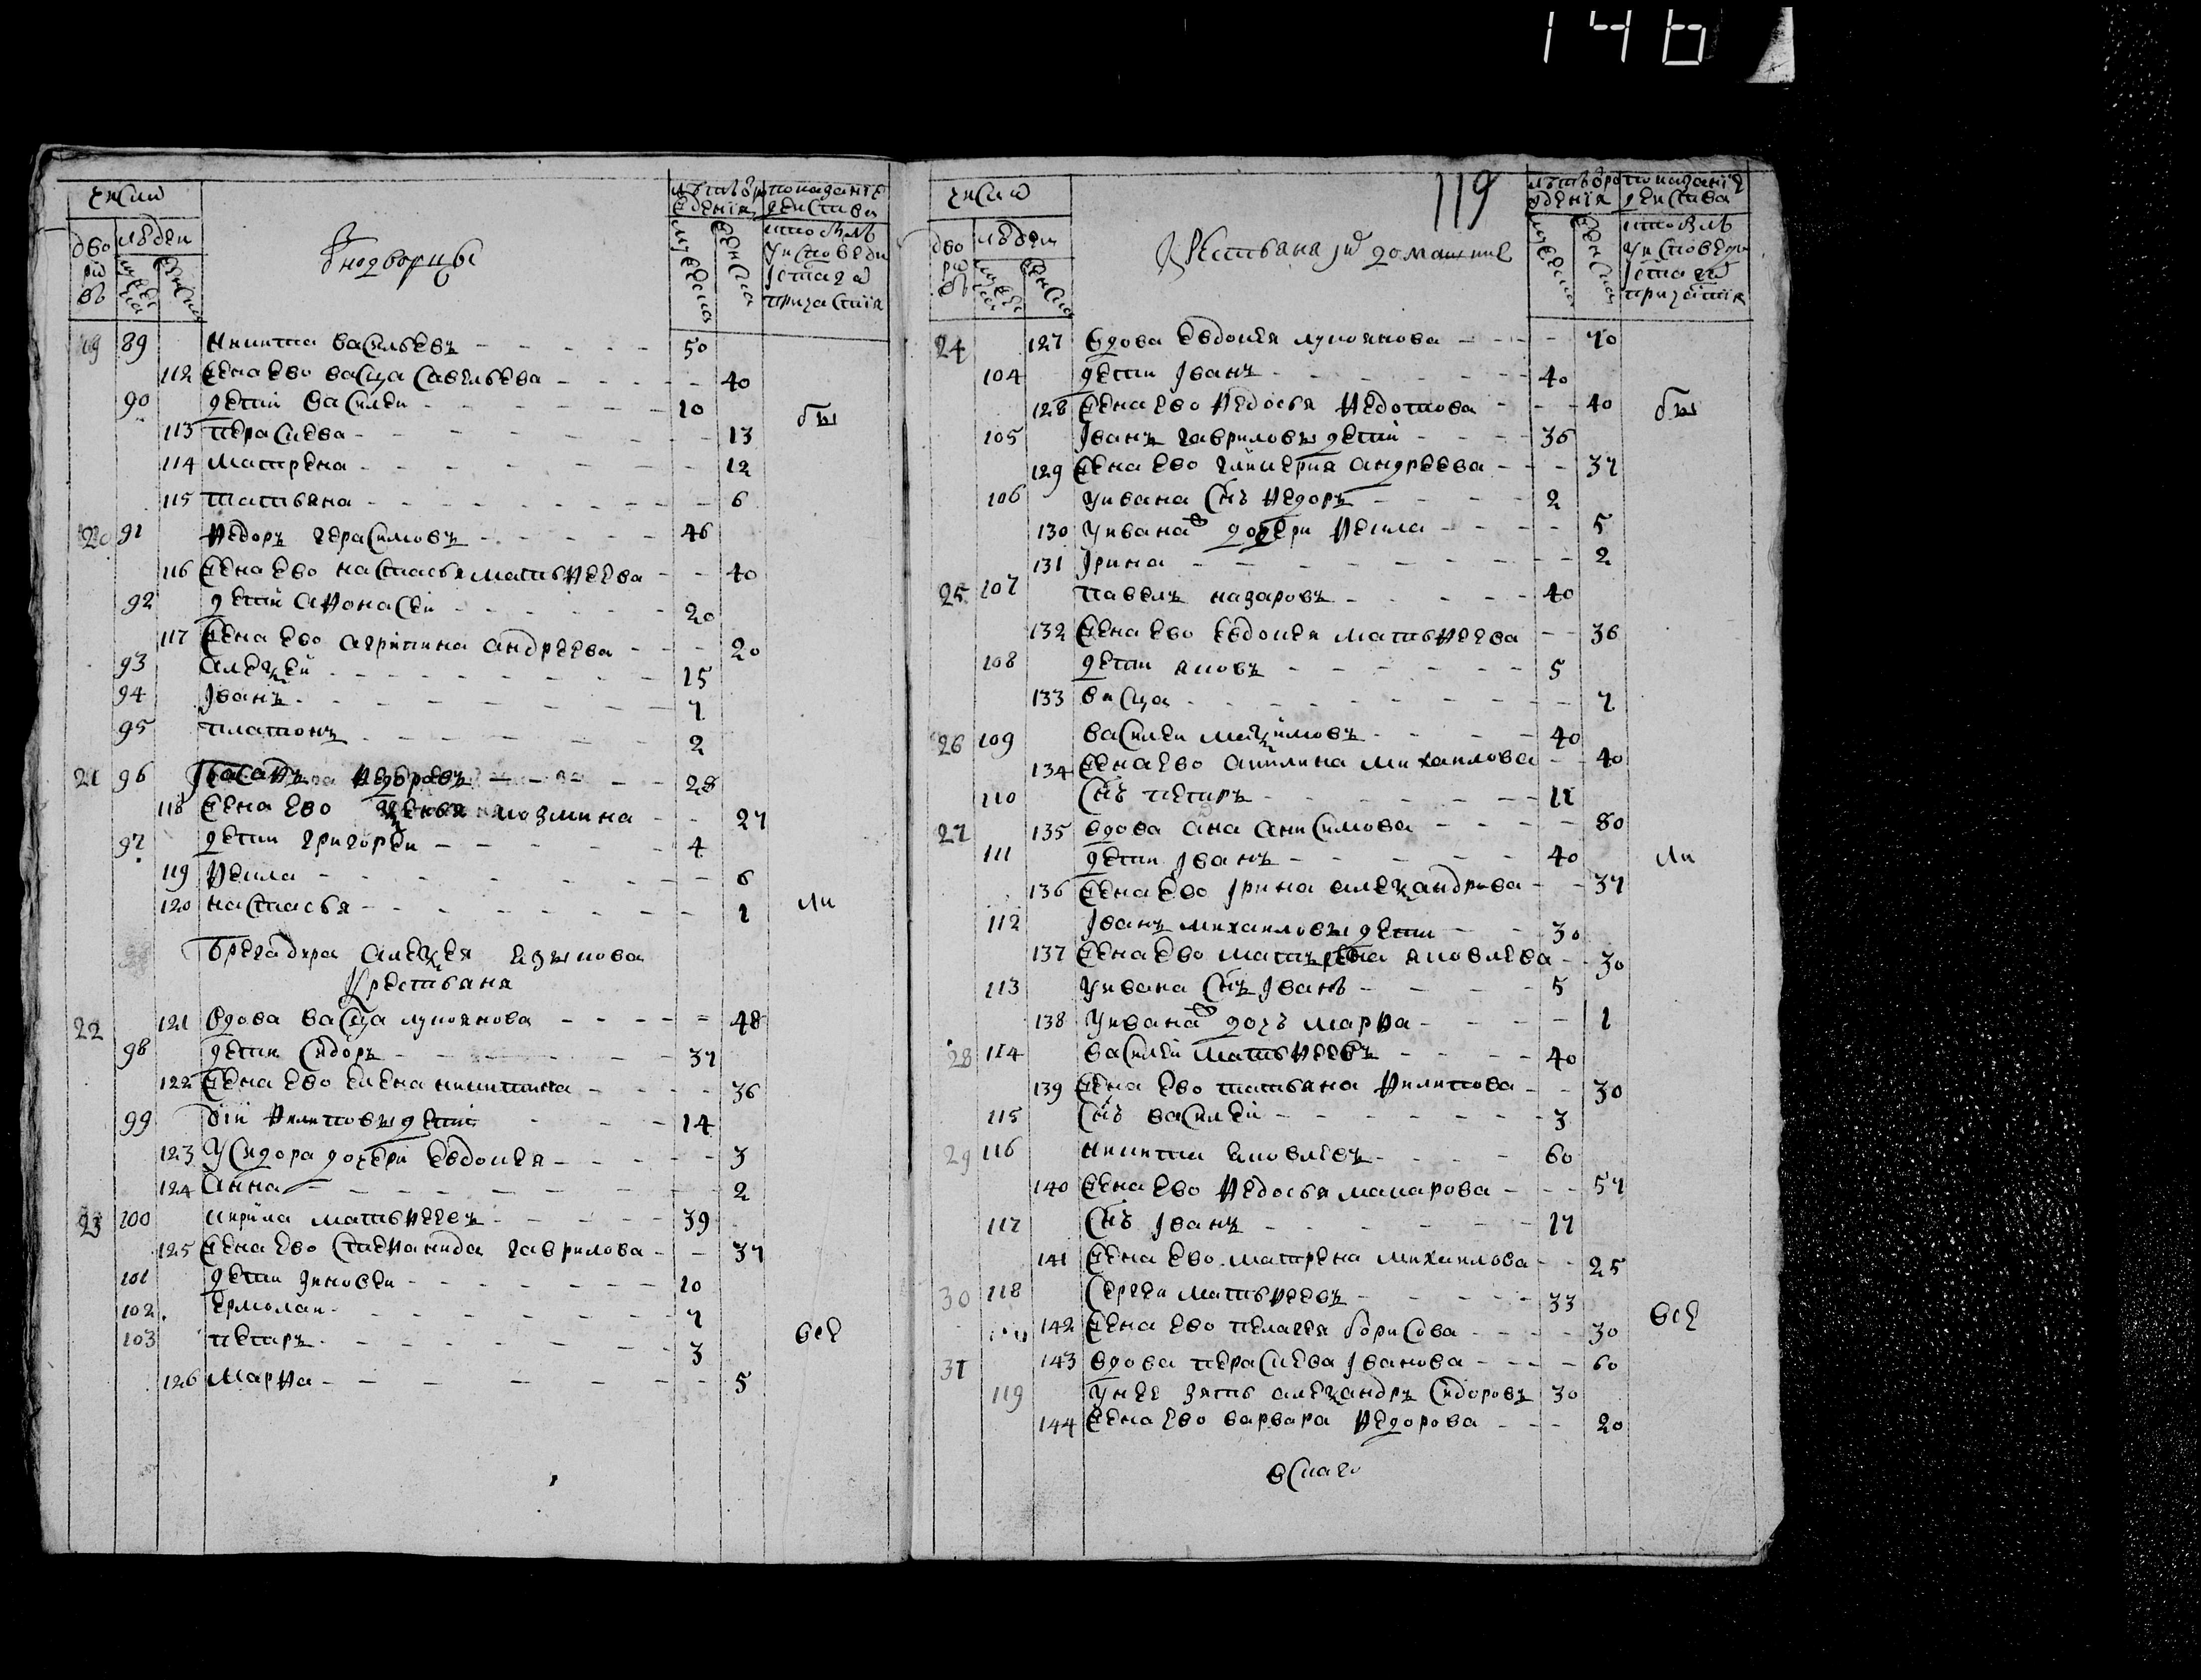 146
число
дворовъ
людей
мужеска
женска
Однодворцы
лѣтъ рождения
мужеска
женска
показание действа
кто былъ у исповеди и святаго причастия
19 89 Никита Васильевъ 50
112 жена ево Васса Савельева 40
90 дети Василеи 10
бы
113 Параскева 13
114 Матрена 12
115 Татьяна 6
20 91 Федоръ Герасимовъ 46
116 жена ево Настасья Матвѣева 40
92 дети Афонасеи 20
117 жена ево Агрипина Андреева 20
93 Алеѯеи 15
94 Иванъ 7
95 Платонъ 2
21 96 Федоровъ 28
118 жена ево Козмина 27
97 дети Григореи 4
119 Фекла 6
120 Настасья 1
ли
Брегадира Алеѯея Языкова
Крестьяня
22 121 вдова Васса Лукоянова 48
98 дети Сидоръ 37
122 жена ево Елена Никитина 36
99 Филиповы дети 14
123 У Сидора дочери Евдокея 3
124 Анна 2
23 100 Кирила Матвѣевъ 39
125 жена ево Стефанида Гаврилова 37
101 дети Зиновеи 10
102 Ермолаи 7
103 Петръ 3
все
126 Марфа 5
119
число
дворовъ
людей
мужеска
женска
Крестьяня и домашние
лѣтъ рождения
мужеска
женска
показание действа
кто былъ у исповеди и святаго причастия
24 127 вдова Евдокея Лукоянова 70
104 дети Иванъ 40
128 жена ево Федосья Федотова 40
бы
105 Иванъ Гавриловы дети 36
129 жена ево Гликерия Андреева 37
106 У Ивана сынъ Федоръ 2
130 У Ивана дочери Фекла 5
131 Ирина 2
25 107 Павелъ Назаровъ 40
132 жена ево Евдокея Матвѣева 36
108 дети Яковъ 5
133 Васса 7
26 109 Василеи Маѯимовъ 40
134 жена ево Акилина Михаилова 40
110 сынъ Петръ 11
27 135 вдова Ана Анисимова 80
111 дети Иванъ 40
ли
136 жена ево Ирина Алеѯандрова 37
112 Иванъ Михаиловы дети 30
137 жена ево Матърена Яковлева 30
113 У Ивана сынъ Иванъ 5
138 У Ивана дочь Марфа 1
28 114 Василеи Матвѣевъ 40
139 жена ево Татьяна Филипова 30
115 сынъ Василеи 3
29 116 Никита Яковлевъ 60
140 жена ево Федосья Макарова 57
117 сынъ Иванъ 17
141 жена ево Матрена Михаилова 25
30 118 Сергеи Матвѣевъ 33
142 жена ево Пелагея Борисова 30
все
31 143 вдова Параскева Иванова 60
119 У нее зять Алеѯандръ Сидоровъ 30
144 жена ево Варвара Федорова 20
всякаго